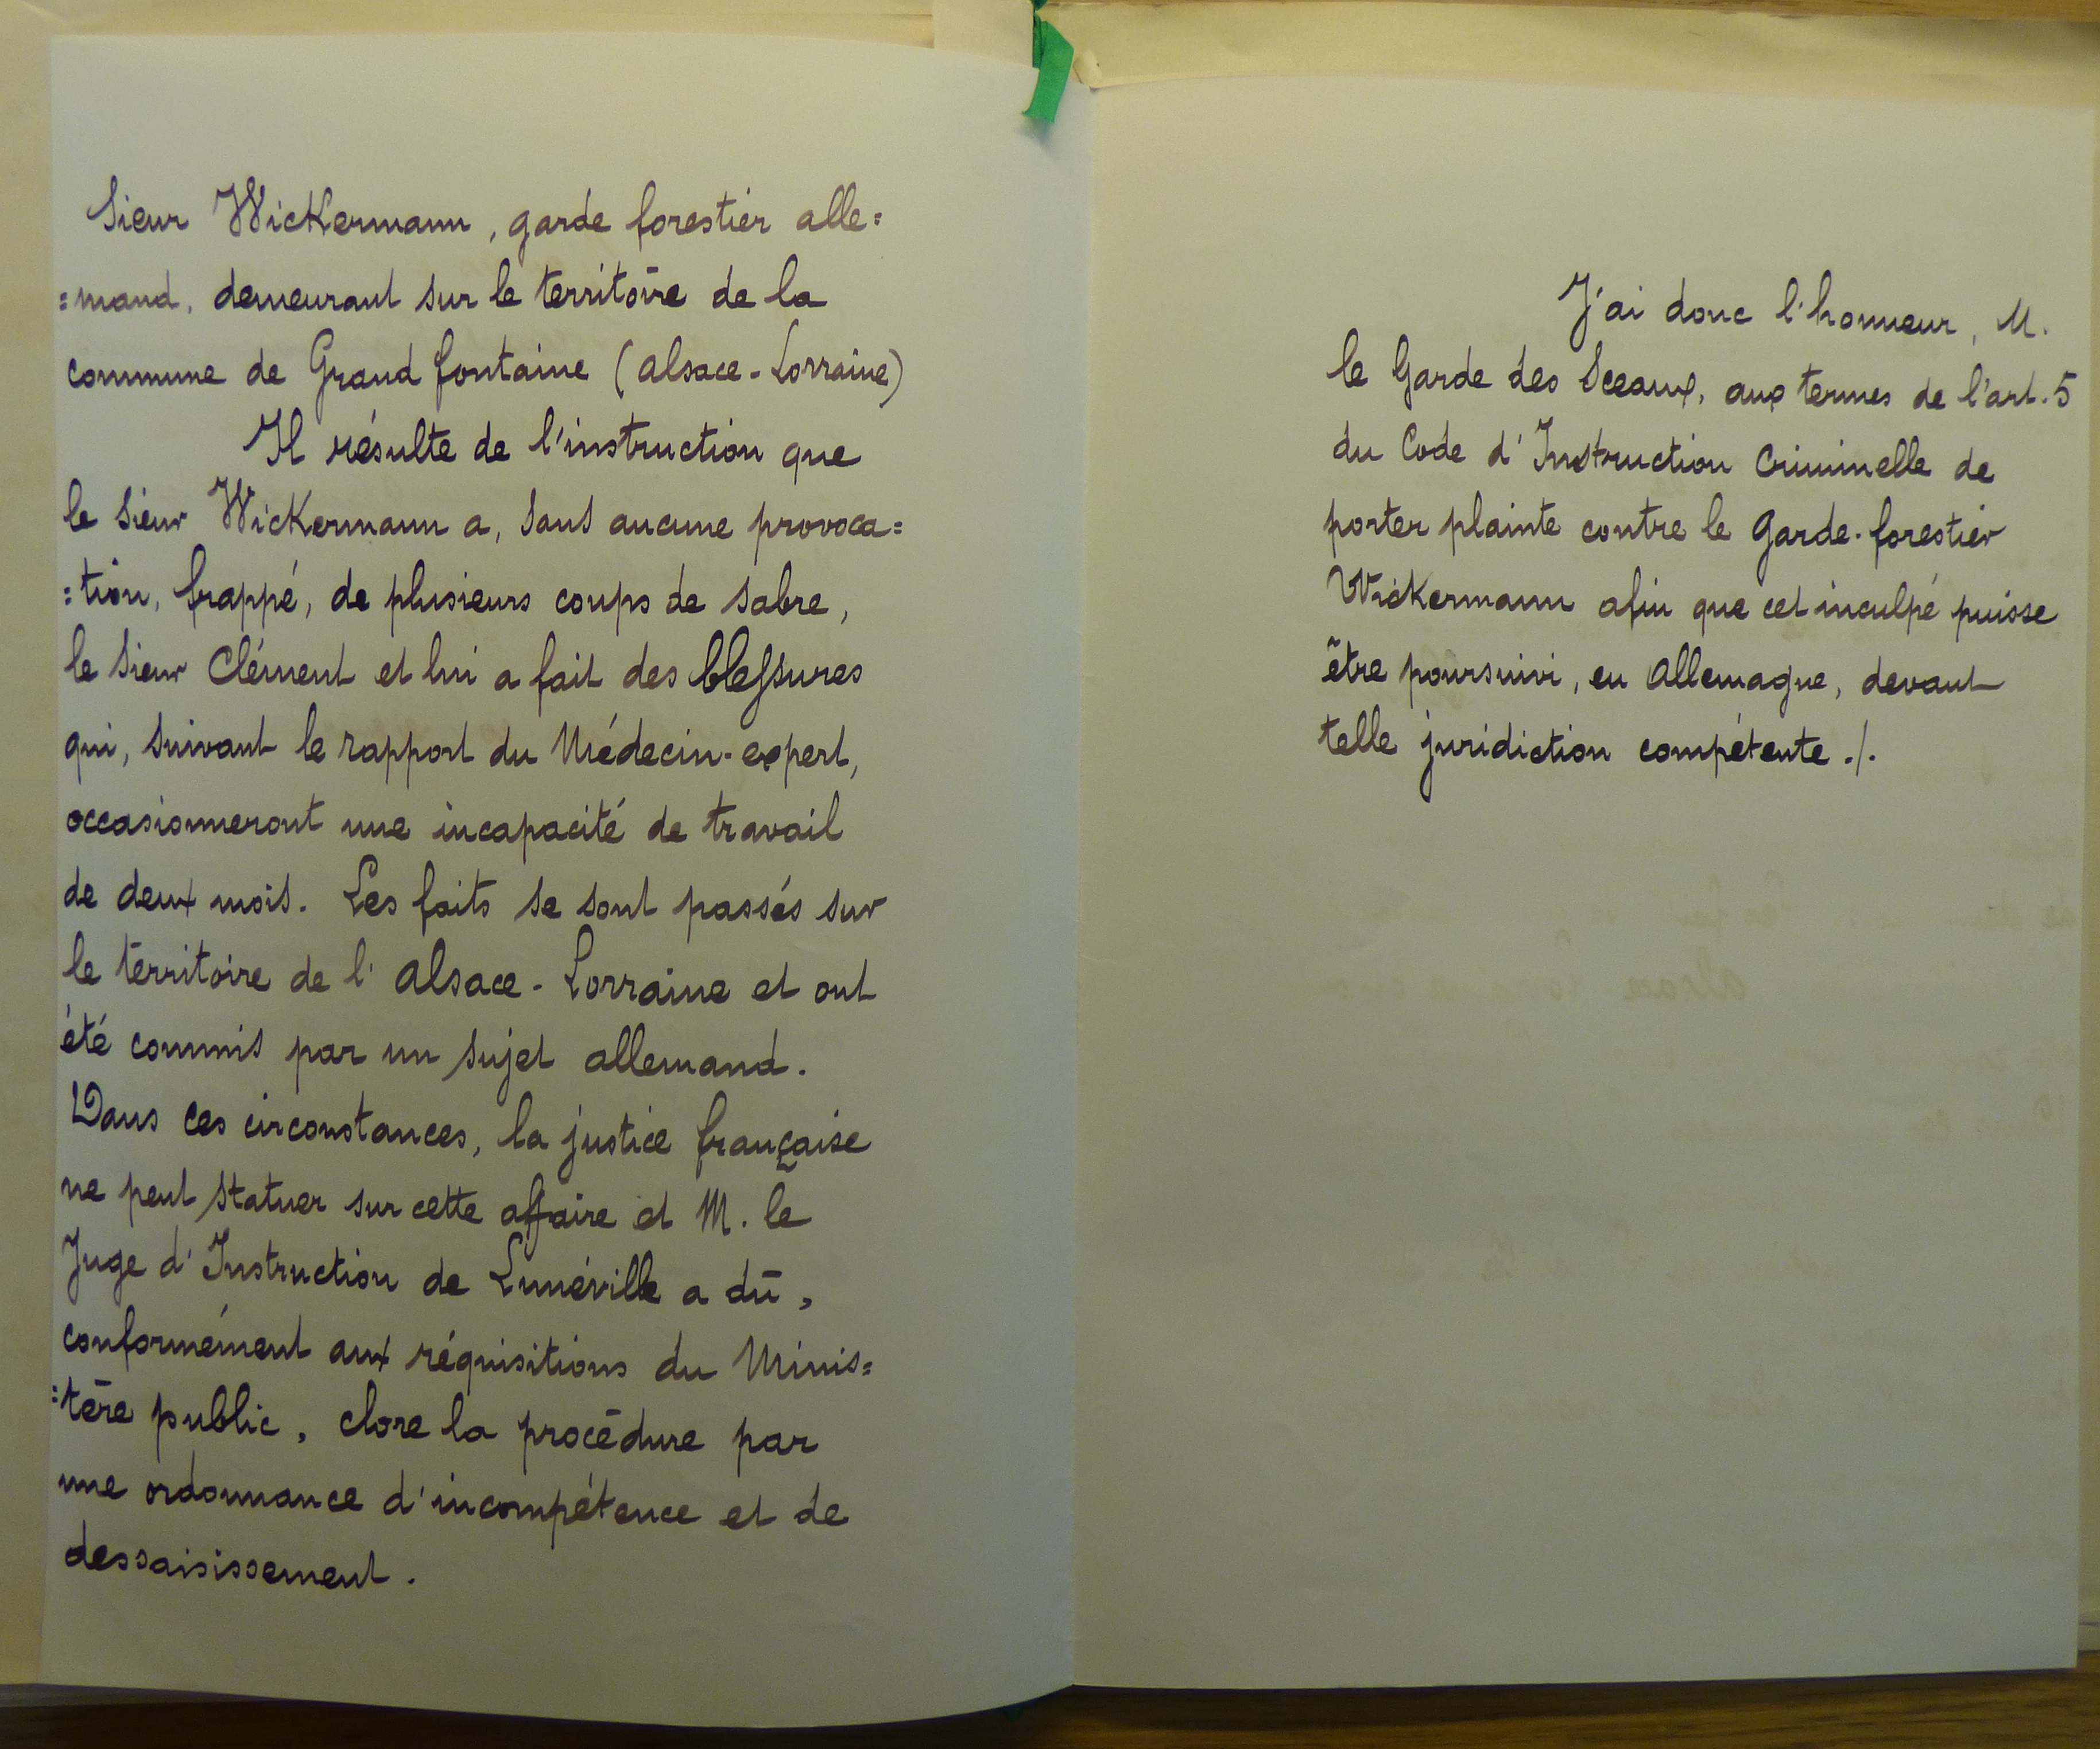 Sieur Wickermann, garde forestier alle=
=mand, demeurant sur le territoire de la
commune de Grand fontaine (Alsace-Lorraine)
Il résulte de l'instruction que
le Sieur Wickermann a, sans aucune provoca=
=tion, frappé, de plusieurs coups de sabre,
le Sieur Clément et lui a fait des blessures
qui, suivant le rapport du Médecin-expert,
occasionneront une incapacité de travail
de deux mois. Les faits se sont passés sur
le territoire de l'Alsace-Lorraine et ont
été commis par un sujet allemand.
Dans ces circonstances, la justice française
ne peut statuer sur cette affaire et M. le
Juge d'Instruction de Lunéville a dû,
conformément aux réquisitions du Minis=
=tère public, clore la procédure par
une ordonnance d'incompétence et de
dessaisissement.
J'ai donc l'honneur, M.
le Garde des Sceaux, aux termes de l'art. 5
du Code d'Instruction Criminelle de
porter plainte contre le Garde-forestier
Wickermann afin que cet inculpé puisse
être poursuivi, en Allemagne, devant
telle juridiction compétente ./.